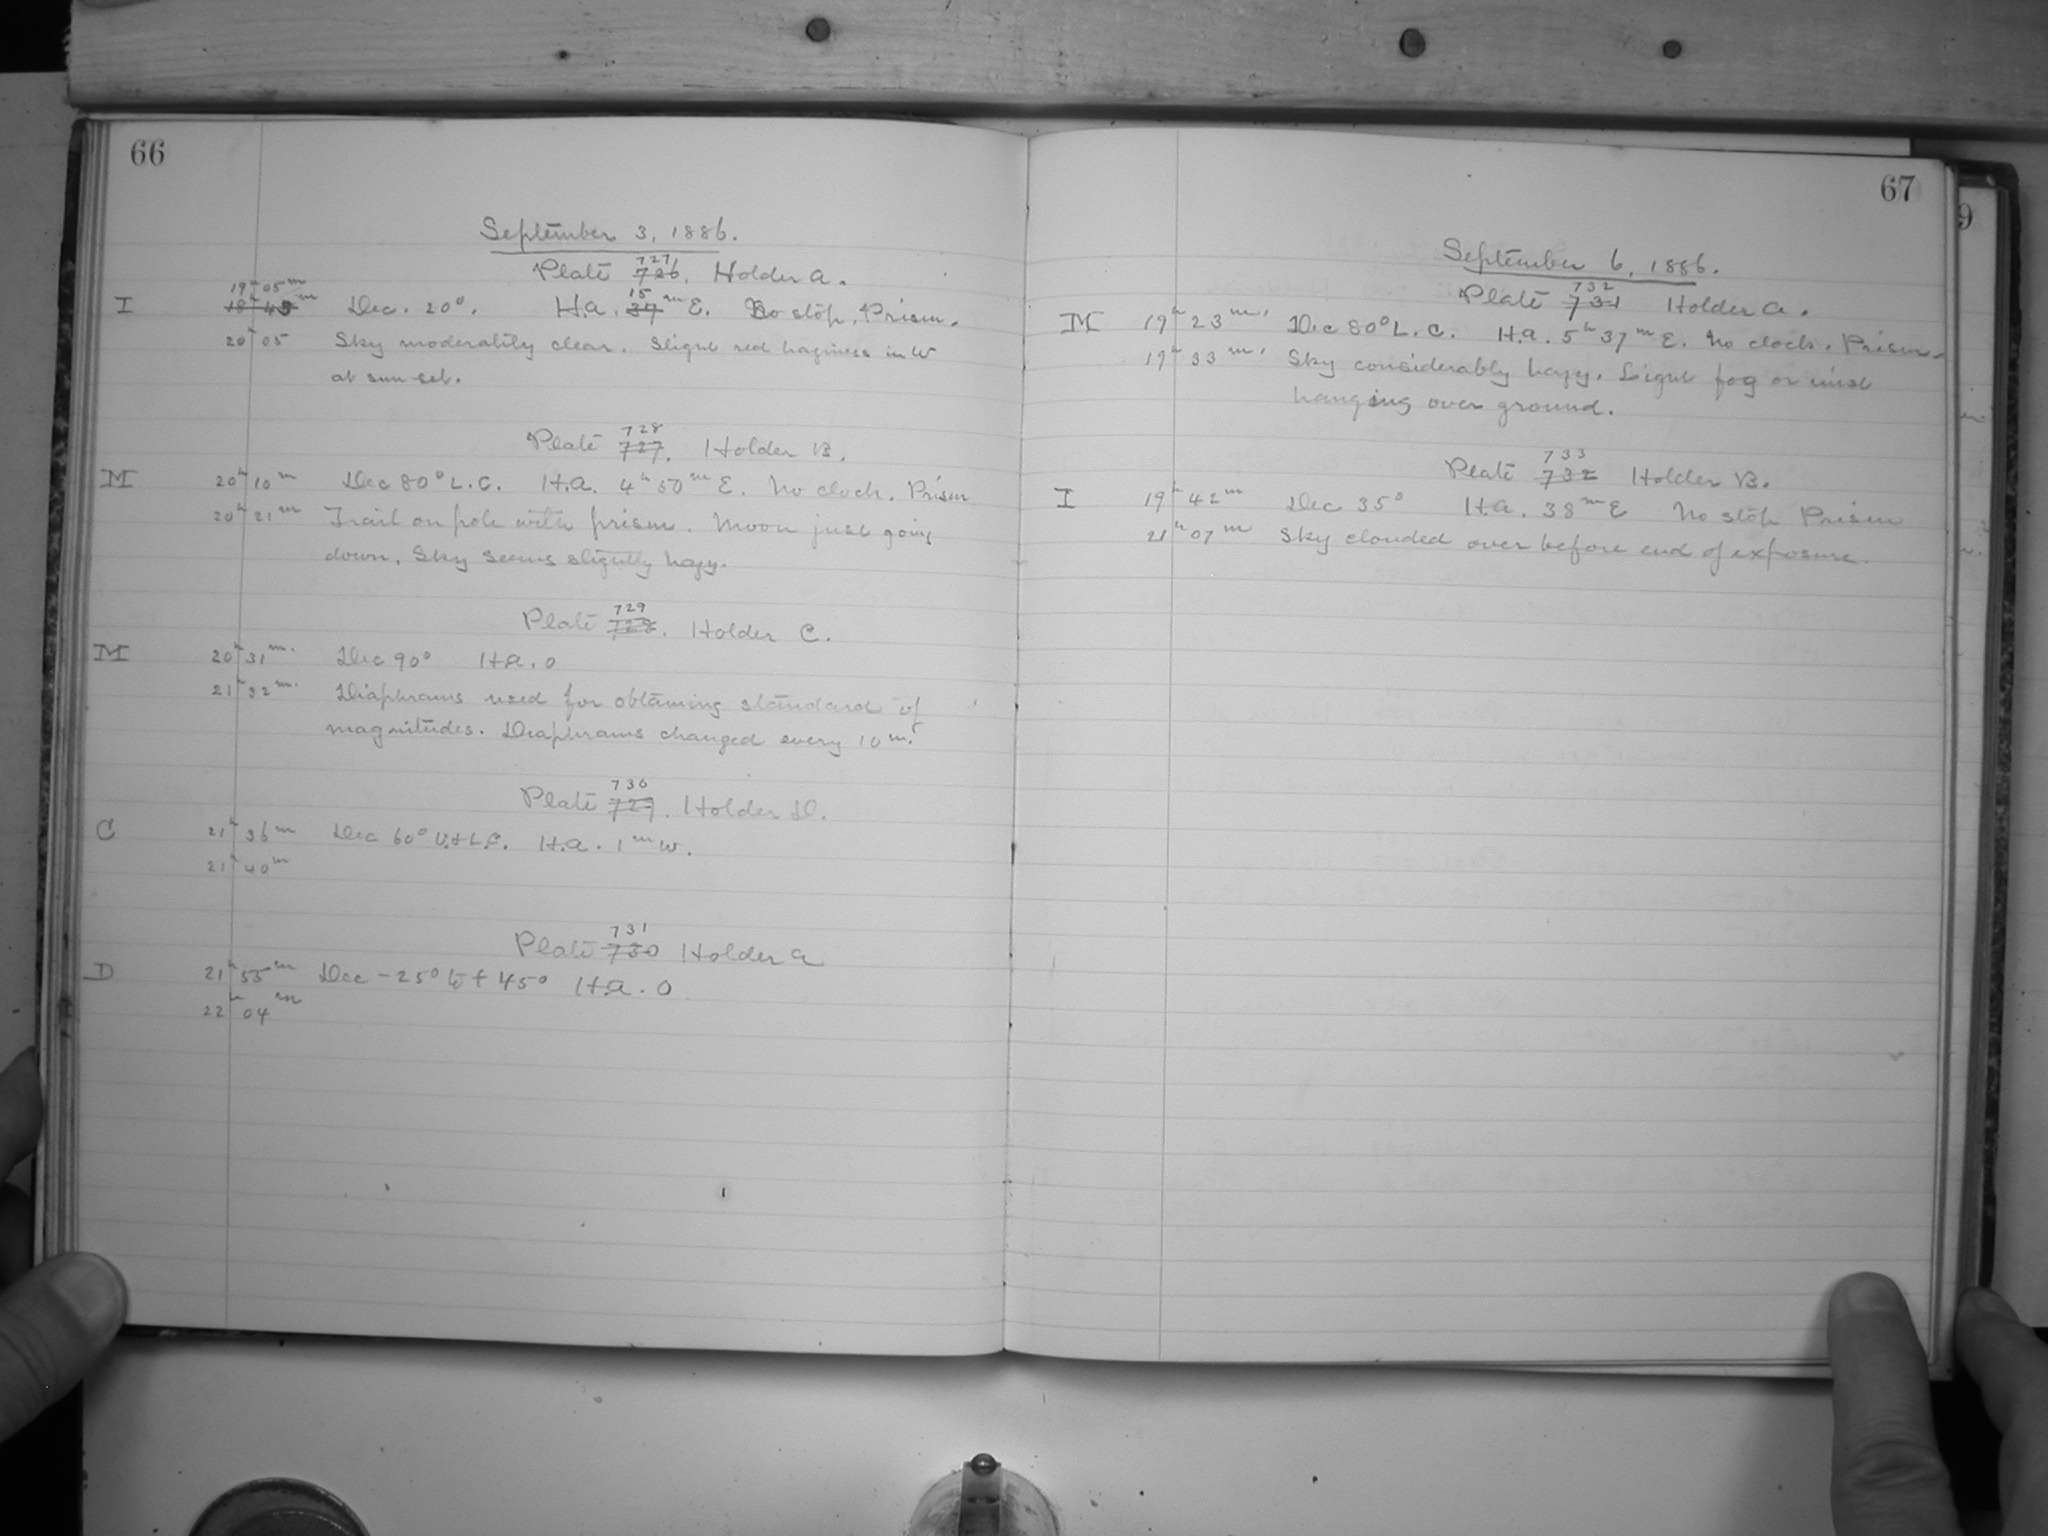 66
September 3, 1886.
727
Plate 726. Holder A.
19h 05m
I 18h 45m Dec. 20°. H.A. 15 37m E. No stop. Prism.
20 05 Sky moderately clear. Slight red haziness in W
at sun-set.
728
Plate 727. Holder B.
M 20h 10m Dec 80° L.C. H.A. 4h 50m E. No clock. Prism
20h 21m Trail on pole with prism. Moon just going
down. Sky seems slightly hazy.
729
Plate 728. Holder C.
M 20h 31m. Dec 90° H.A. 0
21h 32m. Diaphrams used for obtaining standard of
magnitudes. Diaphrams changed every 10m.
730
Plate 729. Holder D.
C 21h 36m Dec 60° U.+L.C. H.A. 1m W.
21h 40m
731
Plate 730 Holder A
D 21h 55m Dec -25° to +45° H.A. 0
22h 04m
67
September 6, 1886.
732
Plate 731 Holder A.
M 19h 23m. Dec 80° L.C. H.A. 5h 37m E. No clock. Prism.
19h 33m. Sky considerably hazy. Light fog or mist
hanging over ground.
733
Plate 732 Holder B.
I 19h 42m Dec 35° H.A. 38m E No stop Prism
21h 07m Sky clouded over before end of exposure.
9